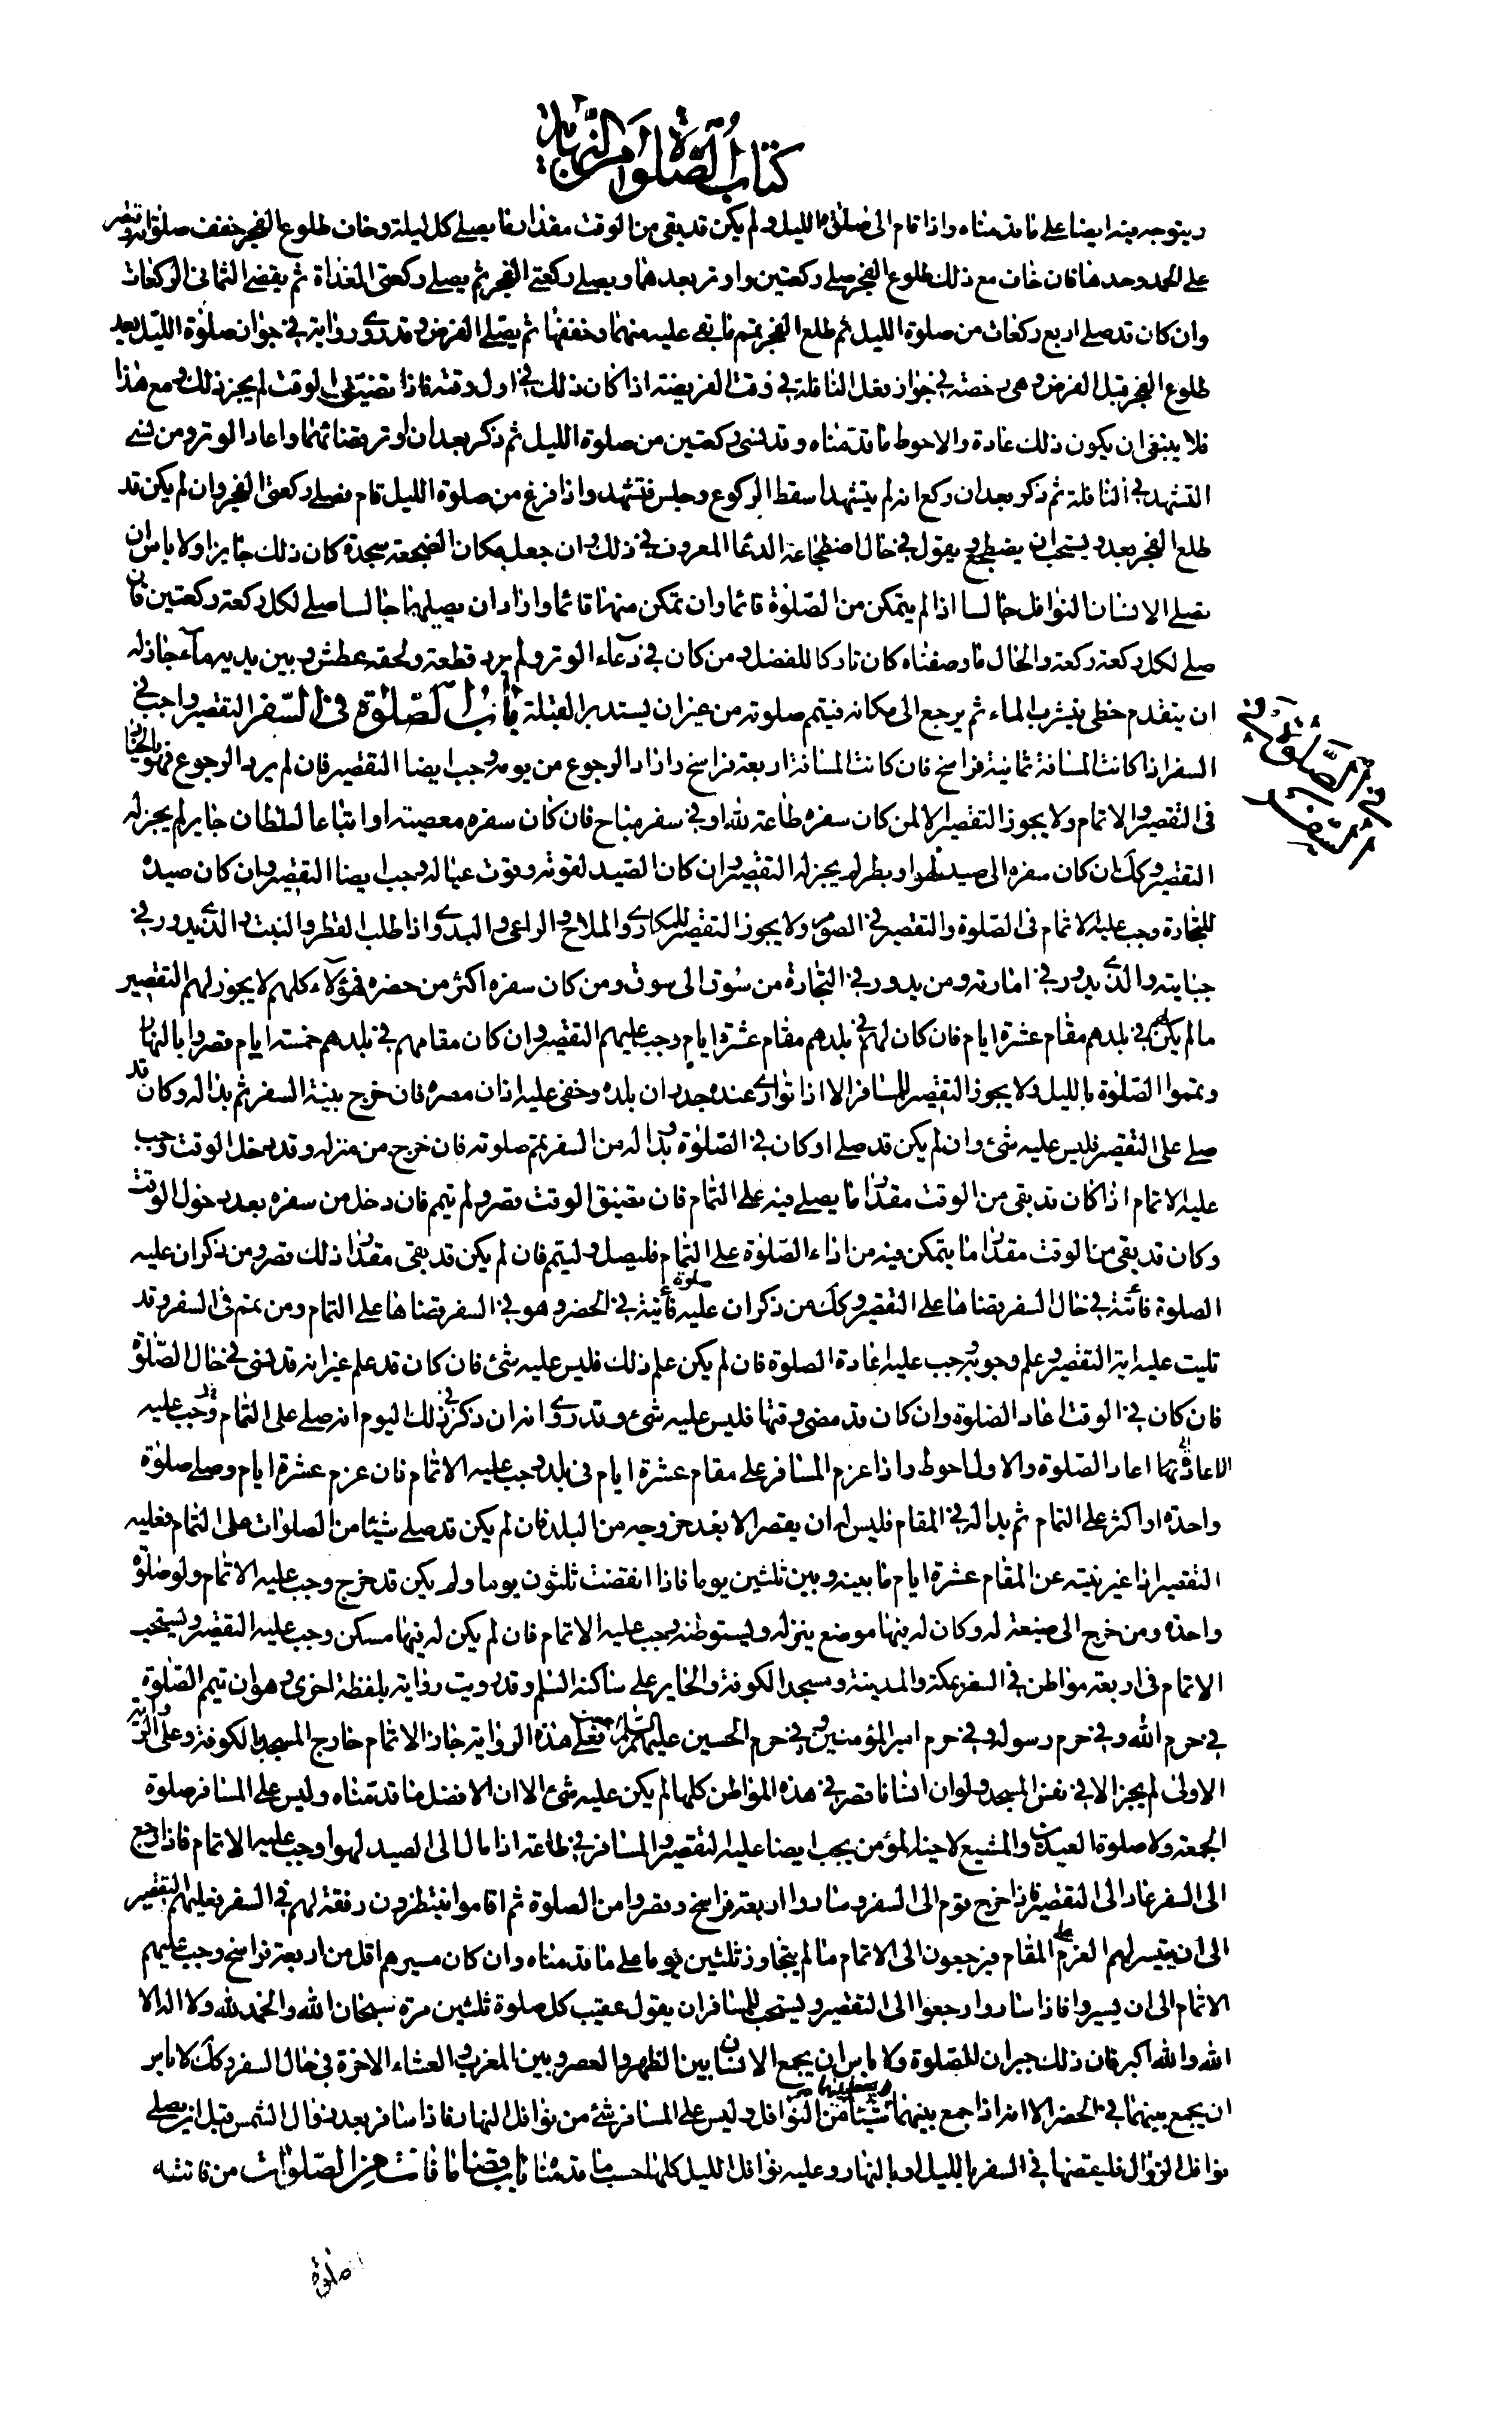 كتاب الصلوة من النهاية
ويتوجه فيه ايضا على ما قدمناه واذا قام الى صلوة الليل ولم يكن قد بقى من الوقت مقدار ما يصلى كل ليلة وخاف طلوع الفجر خفف صلوته واقتصر
على الحمد وحدها فان خاف مع ذلك طلوع الفجر صلى ركعتين واوتر بعدهما ويصلى ركعتى الفجر ثم يصلى ركعتى الغداة ثم يقضى الثمانى الركعات
وان كان قد صلى اربع ركعات من صلوة الليل ثم طلع الفجر تمم ما بقى عليه منها وخففها ثم يصلى الفرض وقد روى رواية فى جواز صلوة الليل بعد
طلوع الفجر قبل الفرض وهى رخصة فى جواز فعل النافلة فى وقت الفريضة اذا كان ذلك فى اول وقته فاذا تضيق الوقت لم يجز ذلك ومع هذا
فلا ينبغى ان يكون ذلك عادة والاحوط ما قدمناه وقد نسى ركعتين من صلوة الليل ثم ذكر بعد ان اوتر قضاهما واعاد الوتر ومن نسى
التشهد فى النافلة ثم ذكر بعد ان ركع انه لم يتشهد اسقط الركوع وجلس فتشهد واذا فرغ من صلوة الليل قام فصلى ركعتى الفجر وان لم يكن قد
طلع الفجر بعد ويستحب ان يضطجع ويقول فى حال اضطجاعه الدعا المعروف فى ذلك وان جعل مكان الضجعة سجدة كان ذلك جايزا ولا باس ان
يصلى الانسان النوافل جالسا اذا لم يتمكن من الصلوة قائما وان تمكن منها قائما واراد ان يصليها جالسا صلى لكل ركعة ركعتين فان
صلى لكل ركعة ركعة والحال ما وصفناه كان تاركا للفضل ومن كان فى دعاء الوتر ولم يرد قطعه ولحقه عطش وبين يديه ماء جاز له
ان يتقدم خطى فيشرب الماء ثم يرجع الى مكانه فيتمم صلوته من غير ان يستدبر القبلة باب الصلوة فى السفر التقصير واجب فى
السفر اذا كانت المسافة ثمانية فراسخ فان كانت المسافة اربعة فراسخ واراد الرجوع من يومه وجب ايضا التقصير فان لم يرد الرجوع فهو بالخيار
فى التقصير والاتمام ولا يجوز التقصير الا لمن كان سفره طاعة لله او فى سفر مباح فان كان سفره معصية او اتباعا لسلطان جاير لم يجز له
التقصير وكك ان كان سفره الى صيد لهوا وبطر لم يجز له التقصير وان كان الصيد لقوته وقوت عياله وجب ايضا التقصير وان كان صيده
للتجارة وجب عليه الاتمام فى الصلوة والتقصير فى الصوم ولا يجوز التقصير للمكارى والملاح والراعى والبدوى اذا طلب القطر والنبت والذى يدور فى
جبايته والذى يدور فى امارته ومن يدور فى التجارة من سوق الى سوق ومن كان سفره اكثر من حضره فهؤلاء كلهم لا يجوز لهم التقصير
ما لم يكن لهم فى بلدهم مقام عشرة ايام فان كان لهم فى بلدهم مقام عشرة ايام وجب عليهم التقصير وان كان مقامهم فى بلدهم خمسة ايام قصروا بالنهار
وتمموا الصلوة بالليل ولا يجوز التقصير للمسافر الا اذا توارى عنه جدران بلده وخفى عليه اذان مصره فان خرج بنية السفر ثم بدا له وكان قد
صلى على التقصير فليس عليه شئ وان لم يكن قد صلى او كان فى الصلوة وبدا له من السفر يتم صلوته فان خرج من منزله وقد دخل الوقت وجب
عليه الاتمام اذا كان قد بقى من الوقت مقدار ما يصلى فيه على التمام فان تضيق الوقت قصر ولم يتمم فان دخل من سفره بعد دخول الوقت
وكان قد بقى من الوقت مقدار ما يتمكن فيه من اداء الصلوة على التمام فليصل وليتمم فان لم يكن قد بقى مقدار ذلك قصر ومن ذكر ان عليه
الصلوة فائتة فى حال السفر قضاها على التقصير وكك من ذكر ان عليه صلوة فائتة فى الحضر وهو فى السفر قضاها على التمام ومن تمم فى السفر وقد
تليت عليه اية التقصير وعلم وجوبه وجب عليه اعادة الصلوة فان لم يكن علم ذلك فليس عليه شئ فان كان قد علم غير انه قد نسى فى حال الصلوة
فان كان فى الوقت اعاد الصلوة وان كان قد مضى وقتها فليس عليه شئ وقد روى انه ان ذكر فى ذلك اليوم انه صلى على التمام وجب عليه
الاعادة اعاد الصلوة والاول احوط واذا عزم المسافر على مقام عشرة ايام فى بلد وجب عليه الاتمام فان عزم عشرة ايام وصلى صلوة
واحدة او اكثر على التمام ثم بدا له فى المقام فليس له ان يقصر الا بعد خروجه من البلد فان لم يكن قد صلى شيئا من الصلوات على التمام فعليه
التقصير اذا غير نيته عن المقام عشرة ايام ما بينه وبين ثلثين يوما فاذا انقضت ثلثون يوما ولم يكن قد خرج وجب عليه الاتمام ولو صلوة
واحدة ومن خرج الى ضيعة له وكان له فيها موضع ينزله ويستوطنه وجب عليه الاتمام فان لم يكن له فيها مسكن وجب عليه التقصير ويستحب
الاتمام فى اربعة مواطن فى السفر بمكة والمدينة ومسجد الكوفة والحاير على ساكنه السلم وقد رويت رواية بلفظة اخرى وهو ان تتمم الصلوة
فى حرم الله وفى حرم رسوله وفى حرم امير المؤمنين وفى حرم الحسين عليهم السلم فعلى هذه الرواية جاز الاتمام خارج المسجد بالكوفة وعلى الرواية
الاولى لم يجز الا فى نفس المسجد ولو ان انسانا قصر فى هذه المواطن كلها لم يكن عليه شئ الا ان الافضل ما قدمناه وليس على المسافر صلوة
الجمعة ولا صلوة العيدين والمشيع لاخيه المؤمن يجب ايضا عليه التقصير والمسافر فى طاعة اذا مال الى الصيد لهوا وجب عليه الاتمام فاذا رجع
الى السفر عاد الى التقصير فاذا خرج قوم الى السفر وساروا اربعة فراسخ وقصروا من الصلوة ثم اقاموا ينتظرون رفقة لهم فى السفر فعليهم التقصير
الى ان يتيسر لهم العزم على المقام فيرجعون الى الاتمام ما لم يتجاوز ثلثين يوما على ما قدمناه وان كان مسيرهم اقل من اربعة فراسخ وجب عليهم
الاتمام الى ان يسيروا فاذا ساروا رجعوا الى التقصير ويستحب للمسافر ان يقول عقيب كل صلوة ثلثين مرة سبحان الله والحمد لله ولا اله الا
الله والله اكبر فان ذلك جبران للصلوة ولا باس ان يجمع الانسان بين الظهر والعصر وبين المغرب والعشاء الاخرة فى حال السفر وكك لا باس
ان يجمع بينهما فى الحضر الا انه اذا جمع بينهما شيئا من النوافل وليس على المسافر شئ من نوافل النهار فاذا سافر بعد زوال الشمس قبل ان يصلى
نوافل الزوال فليقضها فى السفر بالليل او بالنهار وعليه نوافل الليل كلها حسب ما قدمنا باب قضا ما فات من الصلوات من فاتته
فى الصلوة فى السفر
صلوة